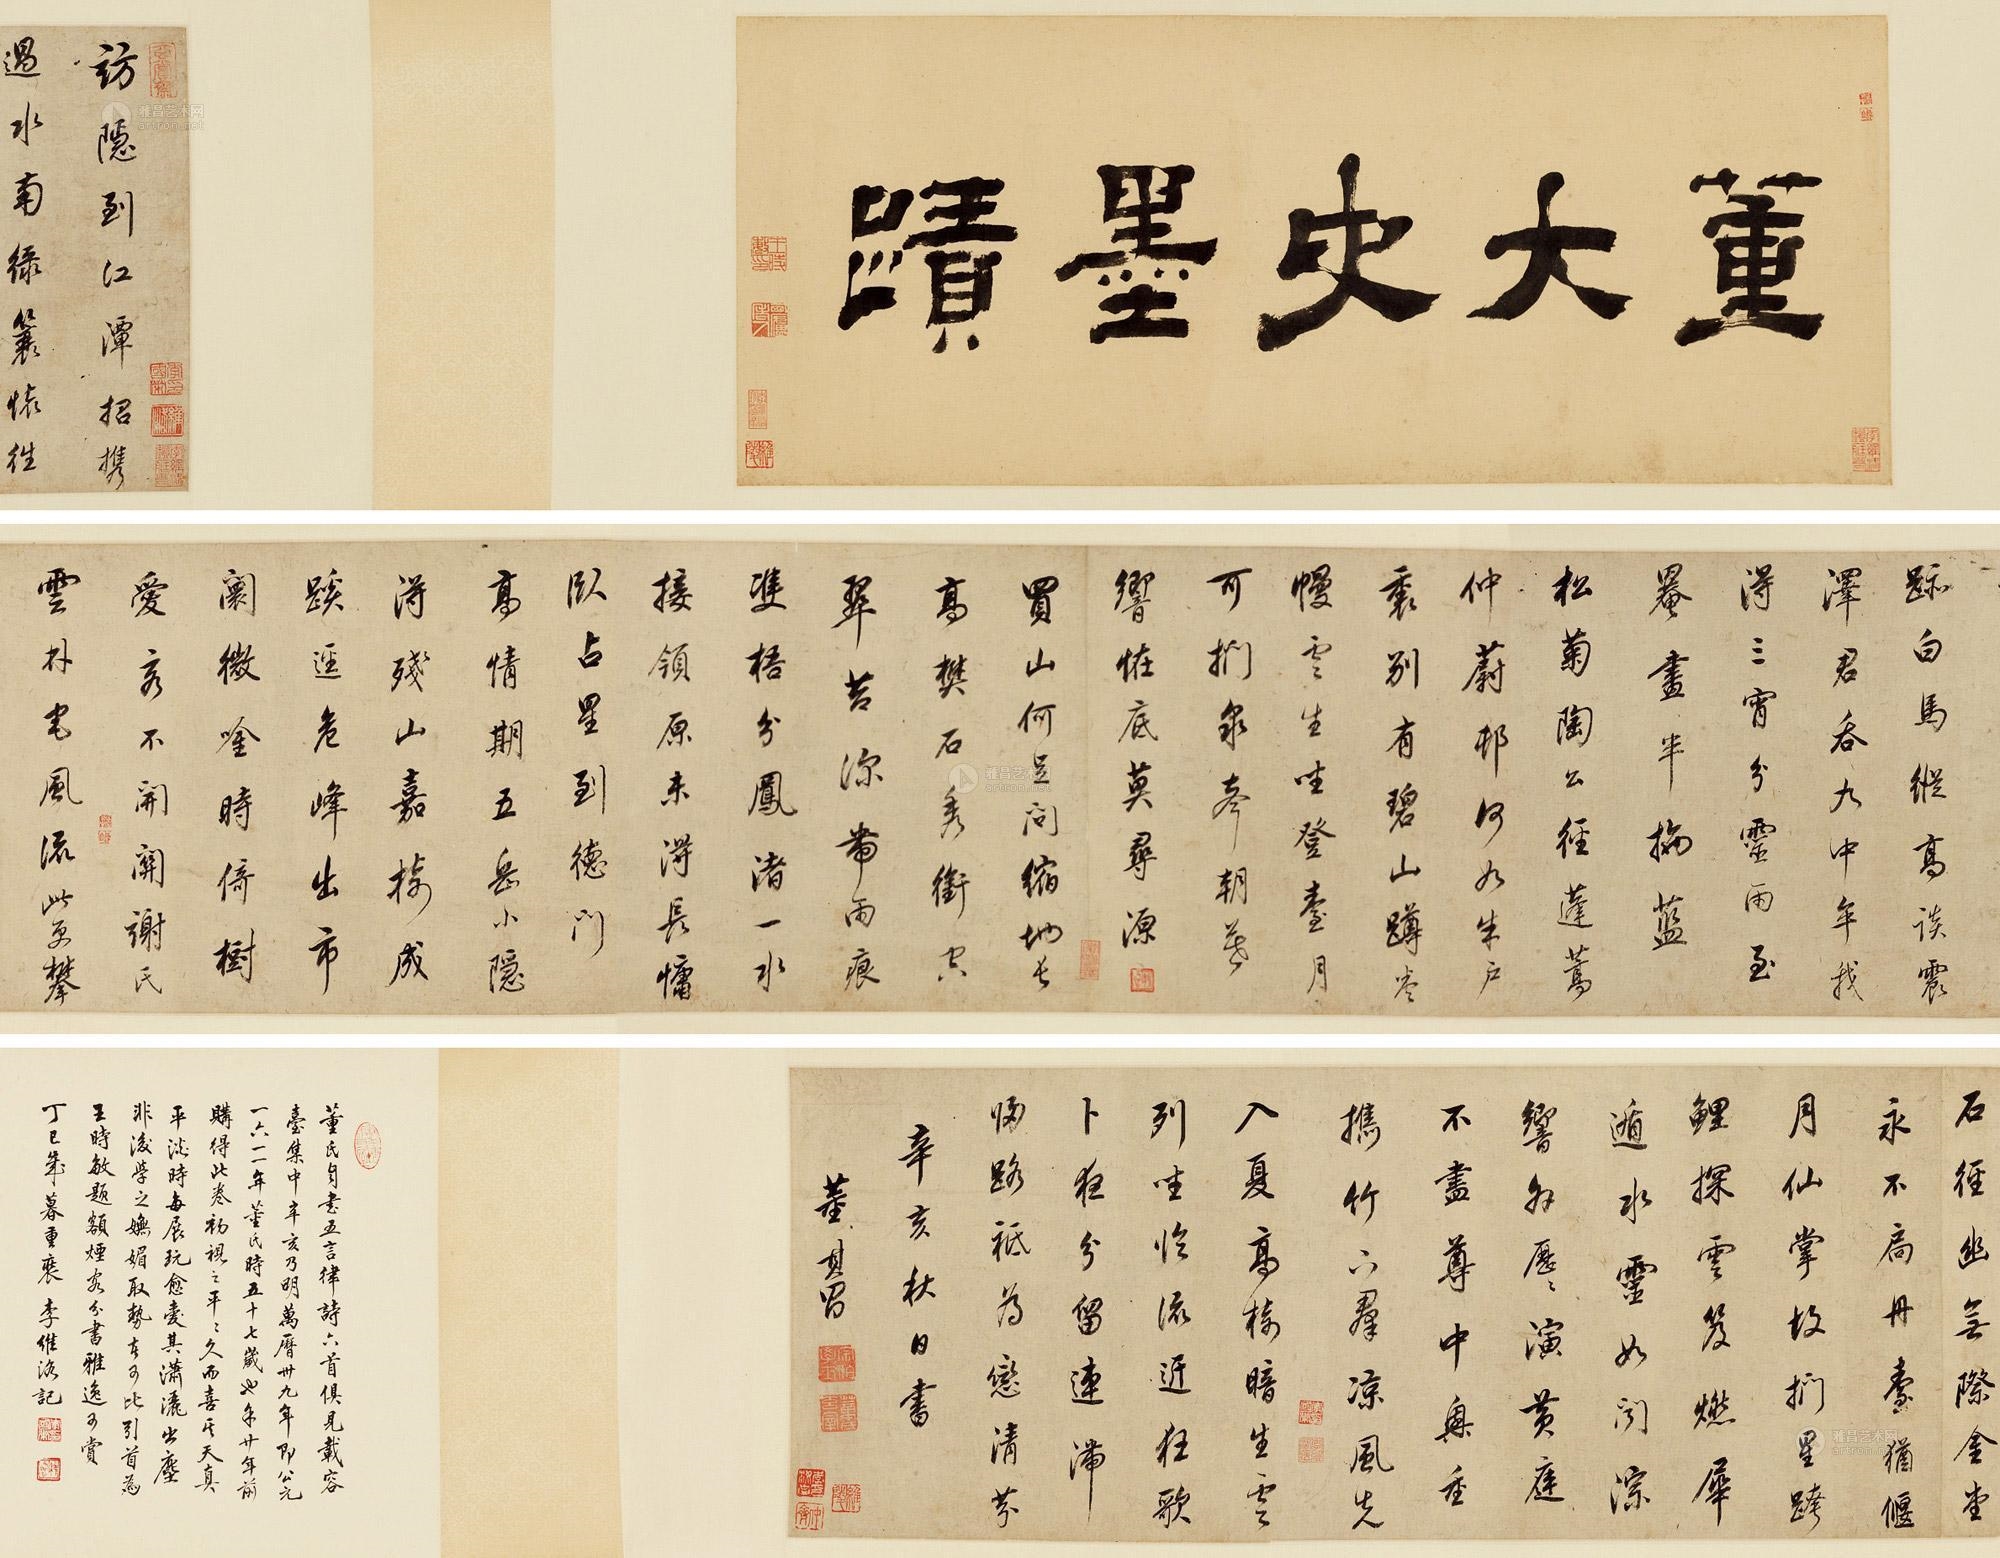 董大史墨蹟
訪隱到江潭招携
過水南緑蓑懷往
跡白馬縱高談震
澤君吞九中年我
得三宵分靈雨至
罨畫半拖藍
松菊陶公徑蓬蒿
仲蔚邨何如朱戶
裏別有碧山蹲岑
幔雲生坐登臺月
可捫泉聲朝暮
響怪底莫尋源
買山何足問縮地長
高樊石秀銜空
翠苔深帶雨痕
雙梧分鳳渚一水
接領原未得長慵
臥占星到德門
高情期五岳小隱
得殘山嘉樹成
蹊逕危峰出市
闤微吟時倚樹
愛客不開關謝氏
雲林宅風流此更攀
石徑幽無際金堂
永不扃丹臺猶偃
月仙掌故捫星跨
鯉探雲笈燃犀
遁水靈如聞淙
響外歷歷演黃庭
不盡尊中興重
攜竹下羣涼風先
入夏高樹暗生雲
列坐臨流近狂歌
卜夜分留連滯
歸路祇為戀清芬
辛亥秋日書
董其昌
董氏自書五言律詩六首俱見載容
臺集中辛亥乃明萬曆卅九年即公元
一六一一年董氏時五十七歲也余廿年前
購得此卷初視之平平久而喜其天真
平淡時每展玩愈愛其瀟灑出塵
非後學之嫵媚取勢者可比引首為
王時敏題額煙客分書雅逸可賞
丁巳歲暮重裝 李維洛記
雅昌艺术网
artron.net
雅昌艺术网
artron.net
雅昌艺术网
artron.net